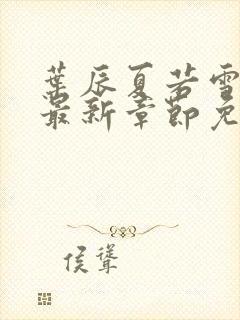 葉辰夏若雪
最新章節免
侯聳